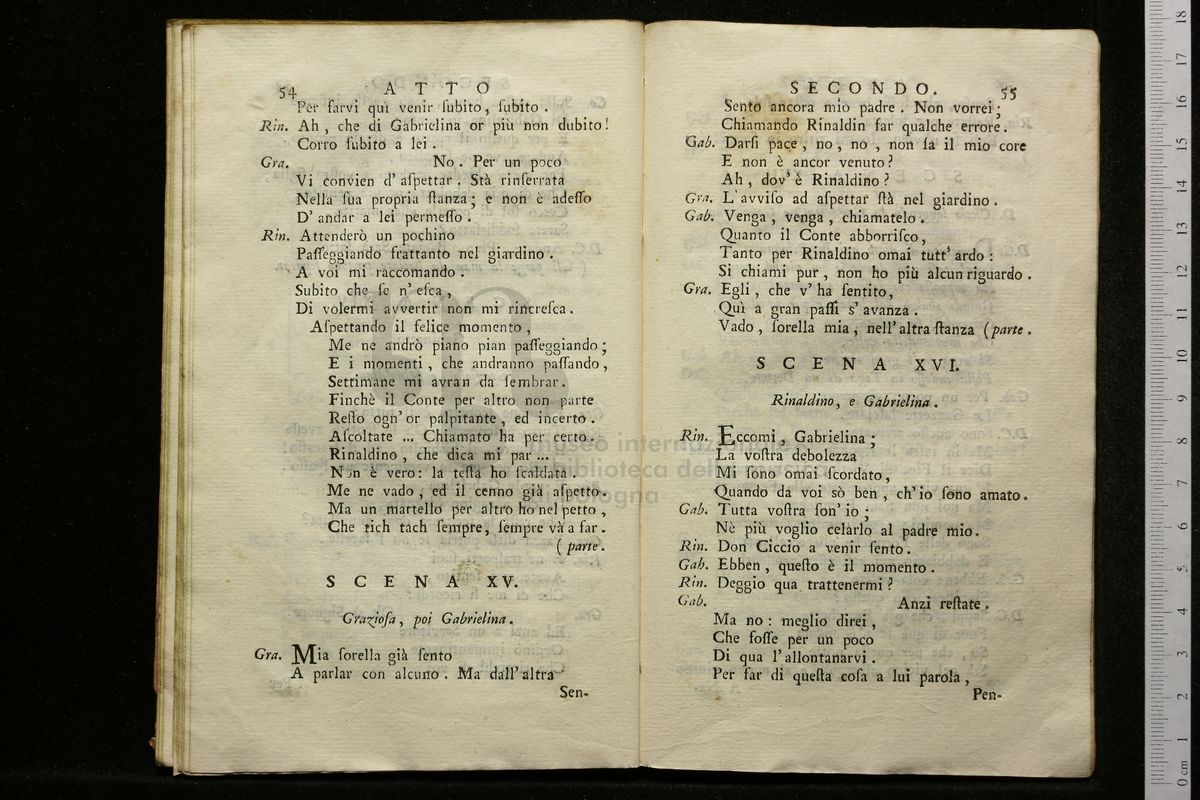 54 ATTO
Per farvi quì venir ſubito, ſubito.
Rin. Ah, che di Gabrielina or più non dubito!
Corro ſubito a lei.
Gra. No. Per un poco
Vi convien d'aſpettar. Stà rinſerrata
Nella ſua propria ſtanza; e non è adeſſo
D'andar a lei permeſſo.
Rin. Attenderò un pochino
Paſſeggiando frattanto nel giardino.
A voi mi raccomando.
Subito che ſe n'eſca,
Di volermi avvertir non mi rincreſca.
Aſpettando il felice momento,
Me ne andrò piano pian paſſeggiando;
E i momenti, che andranno paſſando,
Settimane mi avran da ſembrar.
Finchè il Conte per altro non parte
Reſto ogn'or palpitante, ed incerto.
Aſcoltate ... Chiamato ha per certo.
Rinaldino, che dica mi par ...
Non è vero: la teſta ho ſcaldata.
Me ne vado, ed il cenno già aſpetto.
Ma un martello per altro ho nel petto,
Che tich tach ſempre, ſempre và a far.
(parte.
SCENA XV.
Grazioſa, poi Gabrielina.
Gra. Mia ſorella già ſento
A parlar con alcuno. Ma dall'altra
Sen-
SECONDO. 55
Sento ancora mio padre. Non vorrei;
Chiamando Rinaldin far qualche errore.
Gab. Darſi pace, no, no, non ſa il mio core
E non è ancor venuto?
Ah, dov'è Rinaldino?
Gra. L'avviſo ad aſpettar ſtà nel giardino.
Gab. Venga, venga, chiamatelo.
Quanto il Conte abborriſco,
Tanto per Rinaldino omai tutt'ardo:
Si chiami pur, non ho più alcun riguardo.
Gra. Egli, che v'ha ſentito,
Quì a gran paſſi s'avanza.
Vado, ſorella mia, nell'altra ſtanza (parte.
SCENA XVI.
Rinaldino, e Gabrielina.
Rin. Eccomi, Gabrielina;
La voſtra debolezza
Mi ſono omai ſcordato,
Quando da voi sò ben, ch'io ſono amato.
Gab. Tutta voſtra ſon'io;
Nè più voglio celarlo al padre mio.
Rin. Don Ciccio a venir ſento.
Gab. Ebben, queſto è il momento.
Rin. Deggio qua trattenermi?
Gab. Anzi reſtate.
Ma no: meglio direi,
Che foſſe per un poco
Di qua l'allontanarvi.
Per far di queſta coſa a lui parola,
Pen-
museo internazionale
biblioteca della musica
di bologna
0 cm 1 2 3 4 5 6 7 8 9 10 11 12 13 14 15 16 17 18